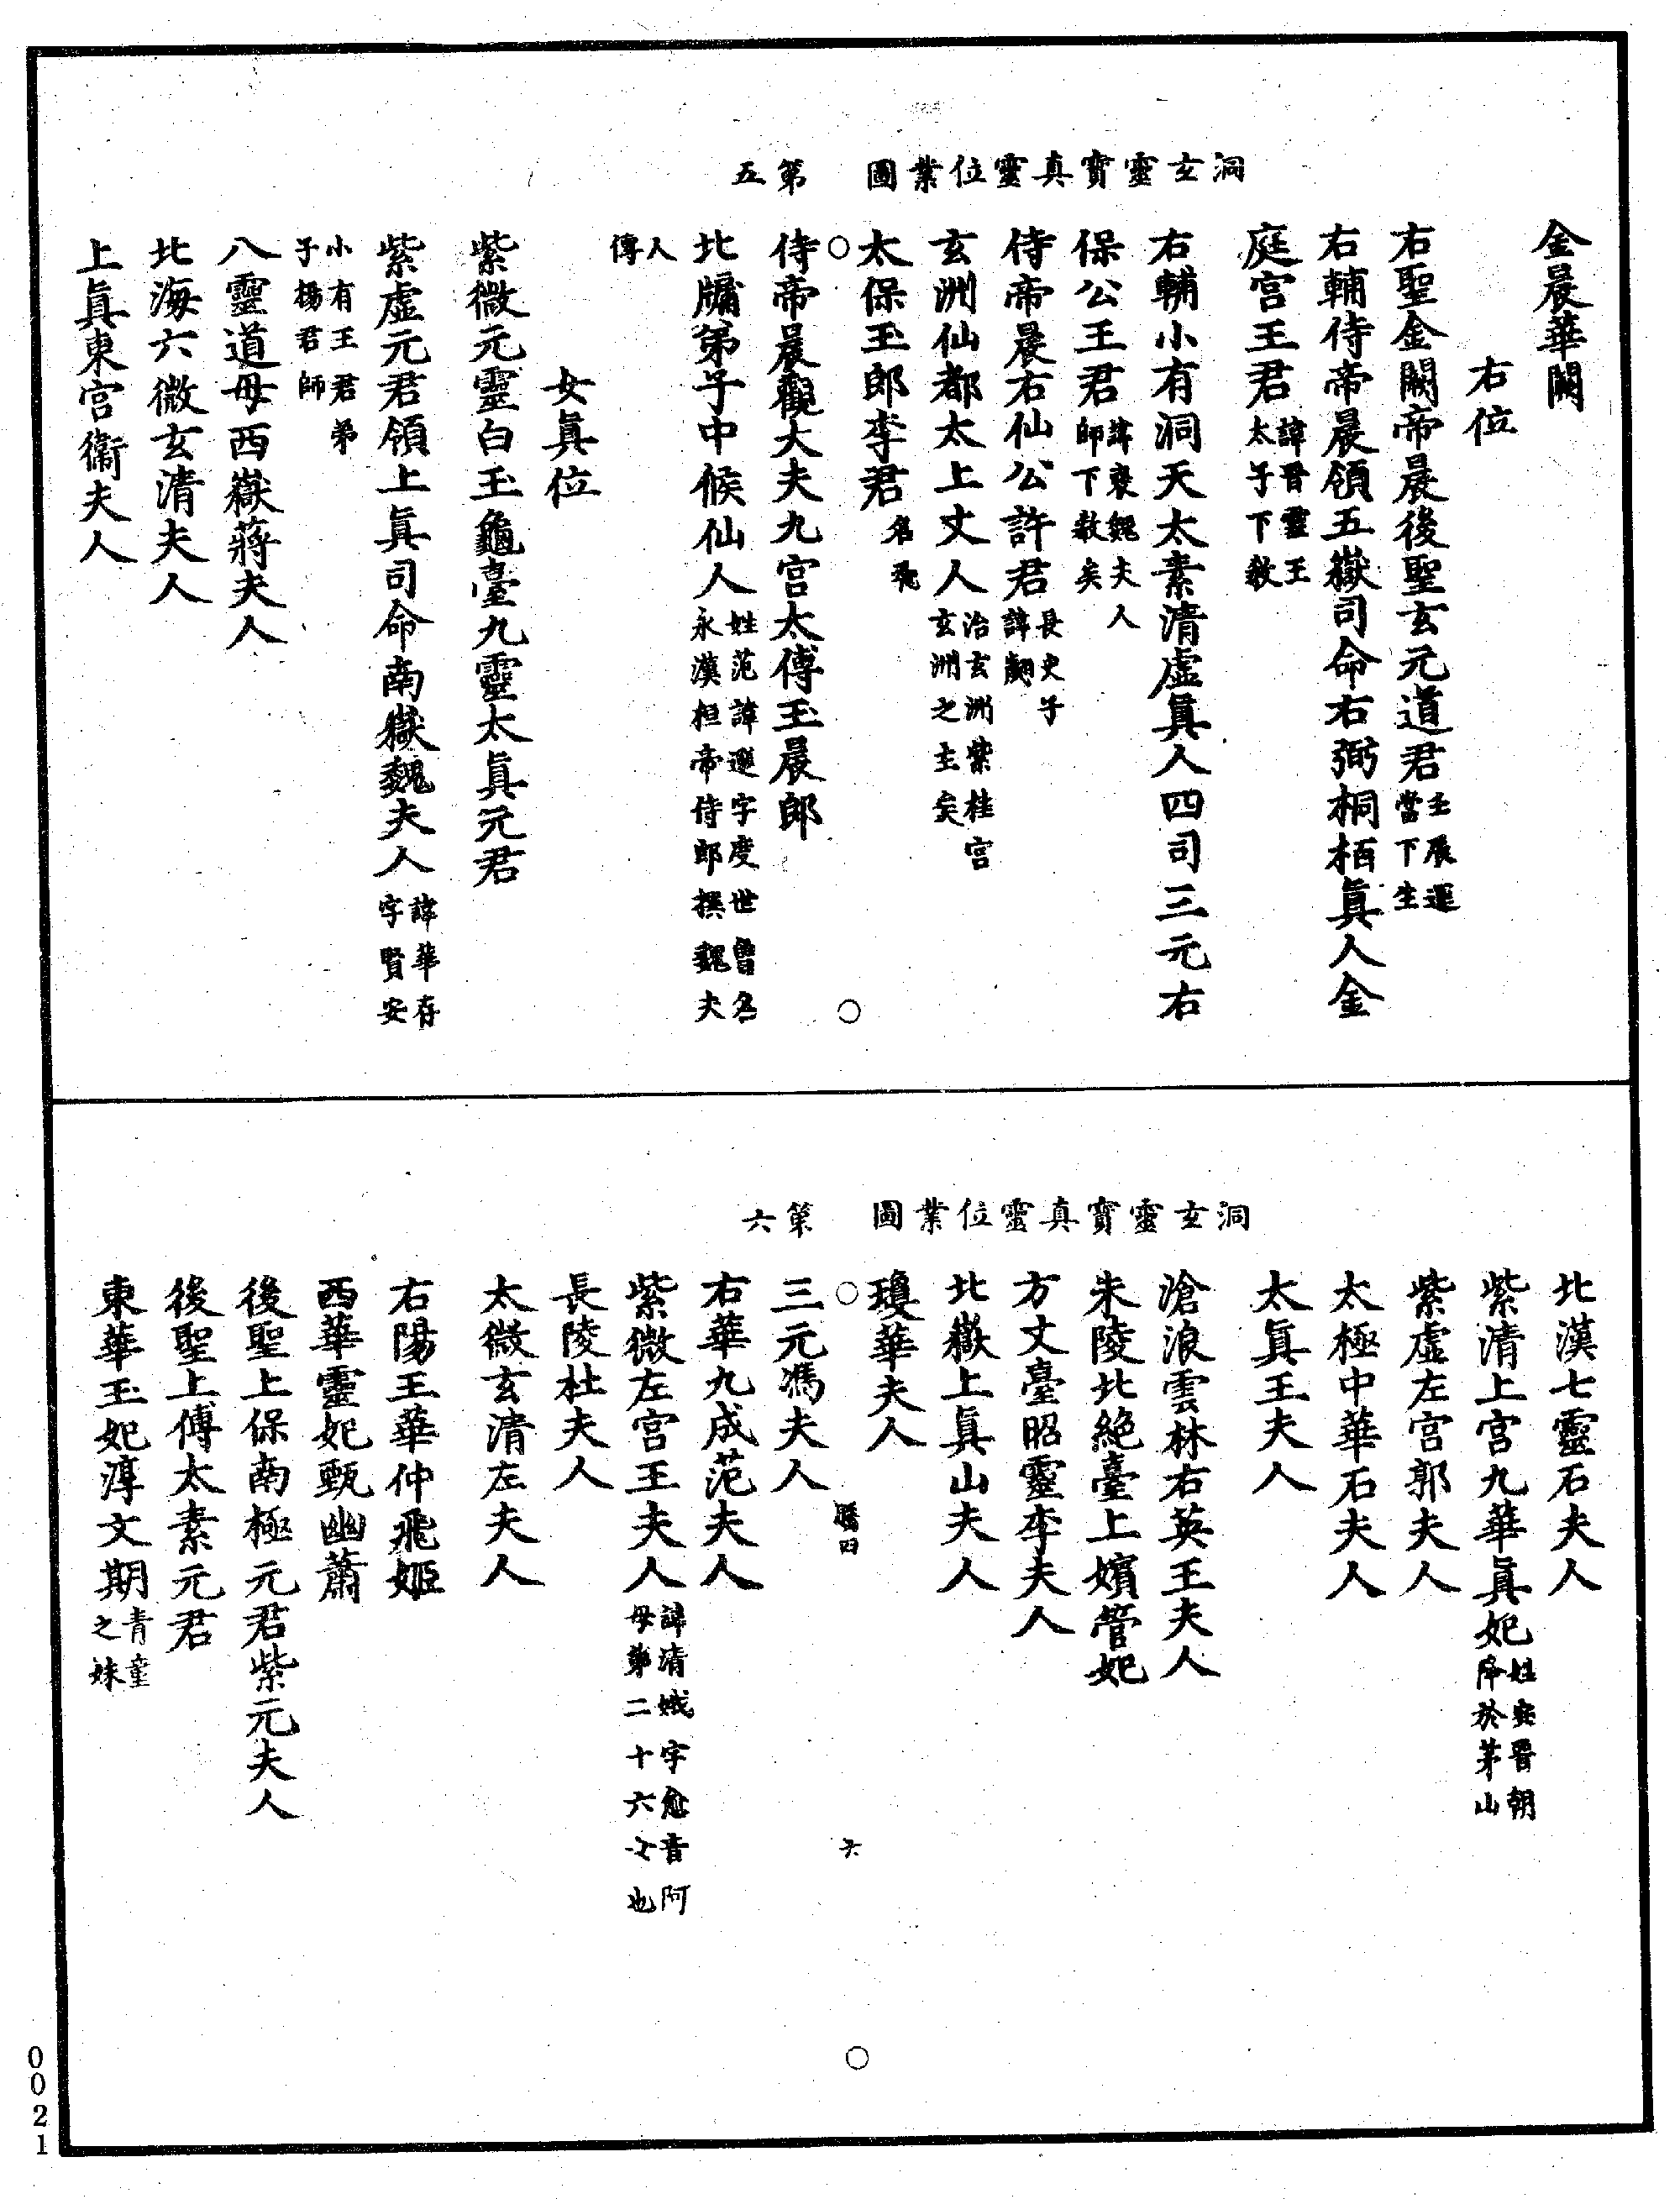 洞玄靈寶真靈位業圖　第五
金晨華闕
右位
右聖金闕帝晨後聖玄元道君壬辰運當下生
右輔侍帝晨領五嶽司命右弼桐栢眞人金
庭宫王君諱晉靈王太子下教
右輔小有洞天太素清虛眞人四司三元右
保公王君諱褒魏夫人師下教矣
侍帝晨右仙公許君長史子諱翽
玄洲仙都太上丈人治玄洲紫桂宫玄洲之主矣
太保玉郎李君名飛
侍帝晨觀大夫九宫太傅玉晨郎
北牖弟子中候仙人姓范諱邈字度世曾名永漢桓帝侍郎撰魏夫
人傳
女眞位
紫微元靈白玉龜臺九靈太眞元君
紫虛元君領上眞司命南嶽魏夫人諱華存字賢安
小有王君弟子楊君師
八靈道母西嶽蔣夫人
北海六微玄清夫人
上眞東宫衞夫人
洞玄靈寶真靈位業圖　第六
北漢七靈石夫人
紫清上宫九華眞妃姓安晉朝降於茅山
紫虛左宫郭夫人
太極中華石夫人
太眞王夫人
滄浪雲林右英王夫人
朱陵北絶臺上嬪管妃
方丈臺昭靈李夫人
北嶽上眞山夫人
瓊華夫人
騰四　六
三元馮夫人
右華九成范夫人
紫微左宫王夫人諱清娥字愈音阿母第二十六女也
長陵杜夫人
太微玄清左夫人
右陽王華仲飛姬
西華靈妃甄幽蕭
後聖上保南極元君紫元夫人
後聖上傅太素元君
東華玉妃淳文期青童之妹
0021